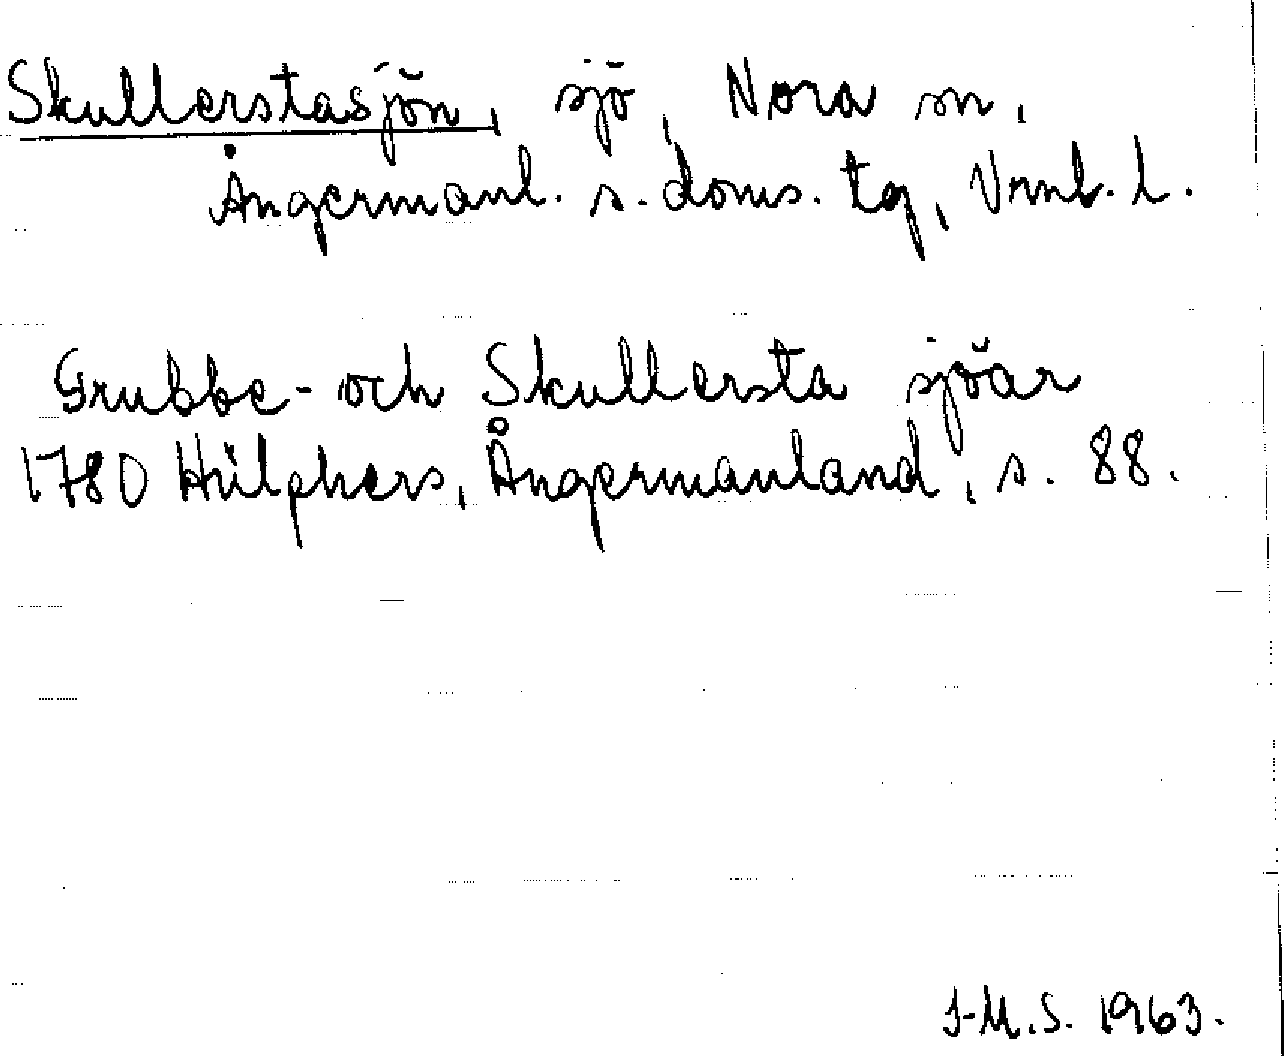 Skullerstasjön, sjö, Nora sn,
Ångermanl. s. doms. tg, Vrnl. l.
Grubbe- och Skullersta sjöar
1780 Hülphers, Ångermanland, s. 88.
I-M.S. 1963.